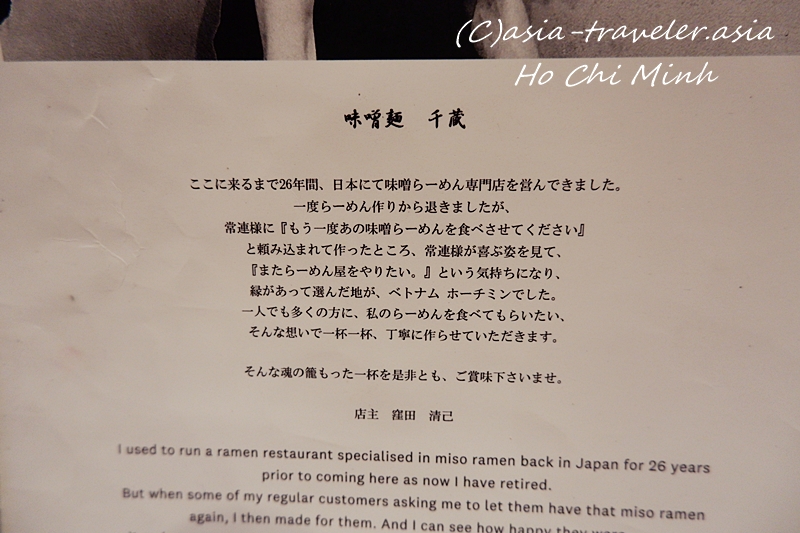 (C)asia-traveler.asia
Ho Chi Minh
味噌麺　千蔵
ここに来るまで26年間、日本にて味噌らーめん専門店を営んできました。
一度らーめん作りから退きましたが、
常連様に『もう一度あの味噌らーめんを食べさせてください』
と頼み込まれて作ったところ、常連様が喜ぶ姿を見て、
『またらーめん屋をやりたい。』という気持ちになり、
縁があって選んだ地が、ベトナム ホーチミンでした。
一人でも多くの方に、私のらーめんを食べてもらいたい、
そんな想いで一杯一杯、丁寧に作らせていただきます。
そんな魂の籠もった一杯を是非とも、ご賞味下さいませ。
店主　窪田　清己
I used to run a ramen restaurant specialised in miso ramen back in Japan for 26 years
prior to coming here as now I have retired.
But when some of my regular customers asking me to let them have that miso ramen
again, I then made for them. And I can see how happy they were